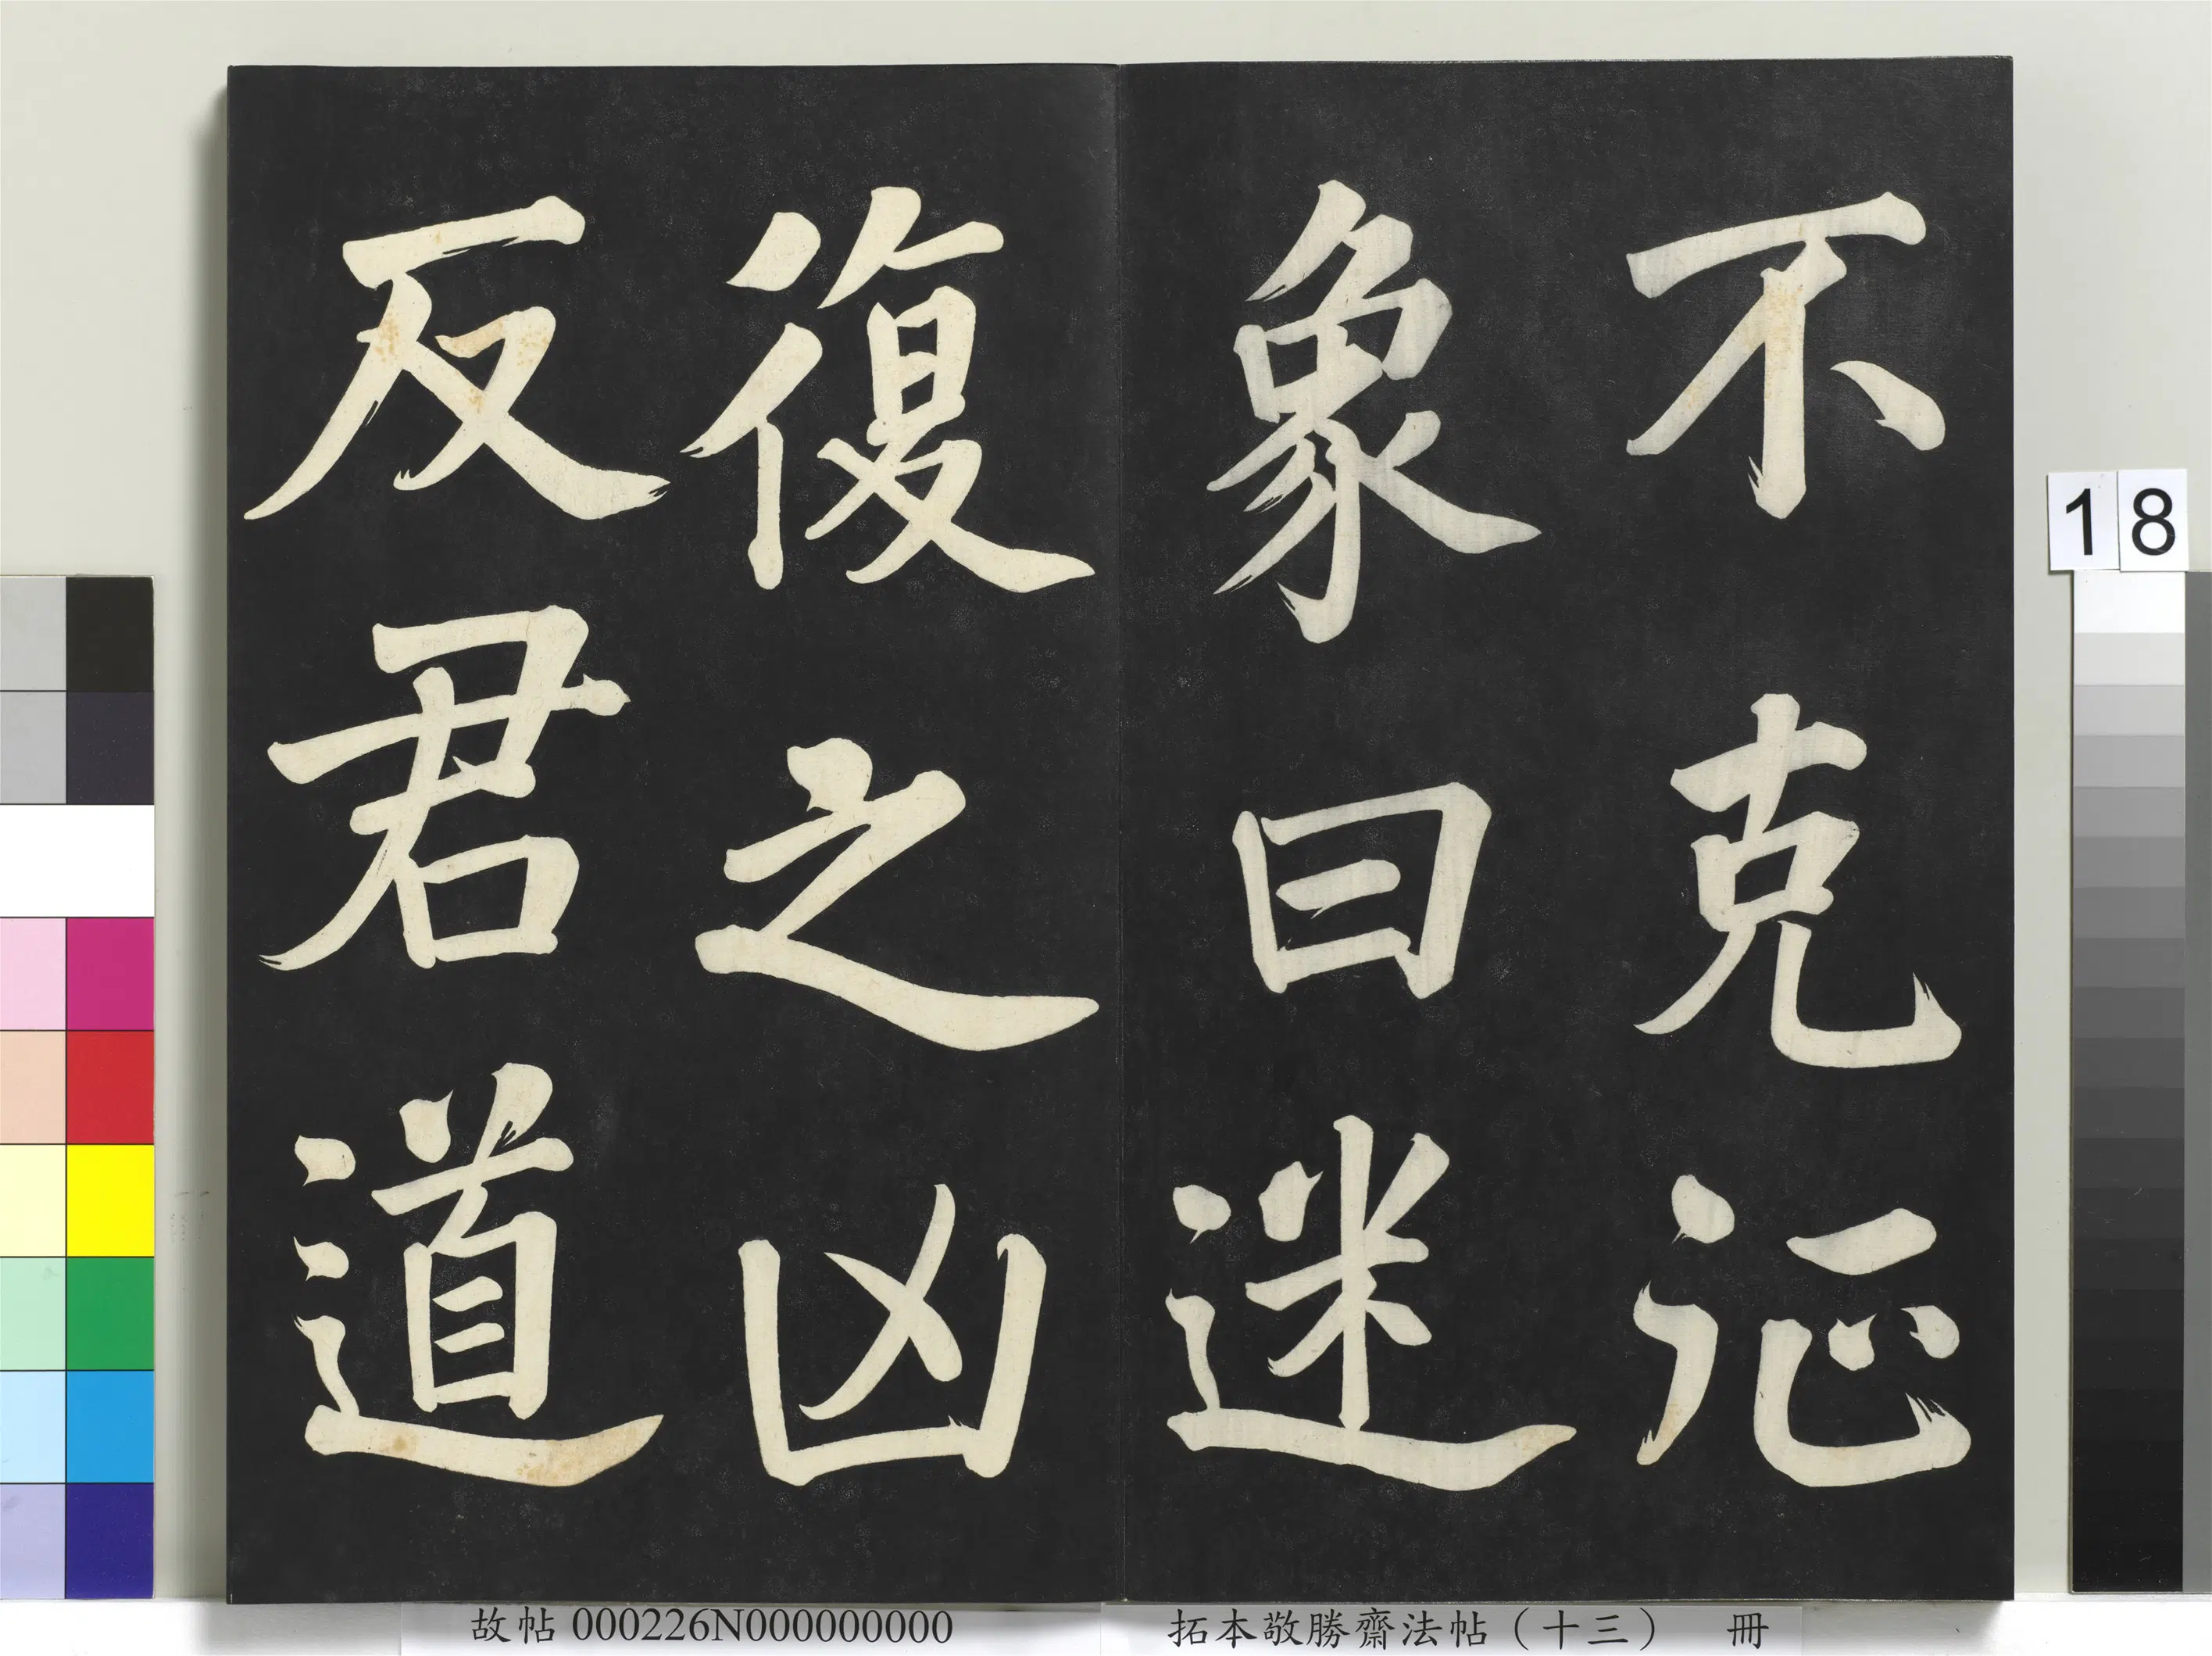 不克征
象曰迷
復之凶
反君道
18
故帖 000226N000000000
拓本敬勝齋法帖（十三） 冊